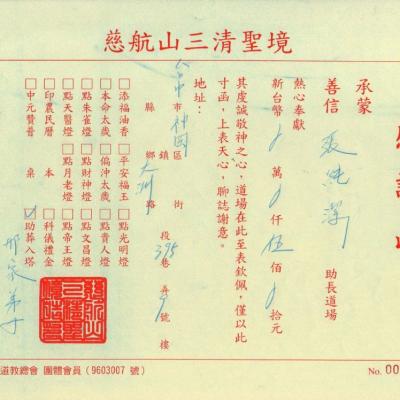 慈航山三清聖境
感謝狀
承蒙
善信 張純潔 助長道場
熱心奉獻
新台幣 0 萬 0 仟 伍 佰 0 拾元
其虔誠敬神之心,道場在此至表欽佩,僅以此
寸函,上表天心,聊誌謝意。
地址:
台中市神岡區 街 段 395 巷 弄 9 號 樓
縣 鄉鎮 大洲路
□添福油香 □平安福玉 □點光明燈
□本命太歲 □偏沖太歲 □點貴人燈
□點朱雀燈 □點財神燈 □點文昌燈
□點天醫燈 □點月老燈 □點帝王燈
□印農民曆 □科儀禮金
□中元贊普 桌 □助葬入塔
道教總會 團體會員 (9603007 號)
No. 00